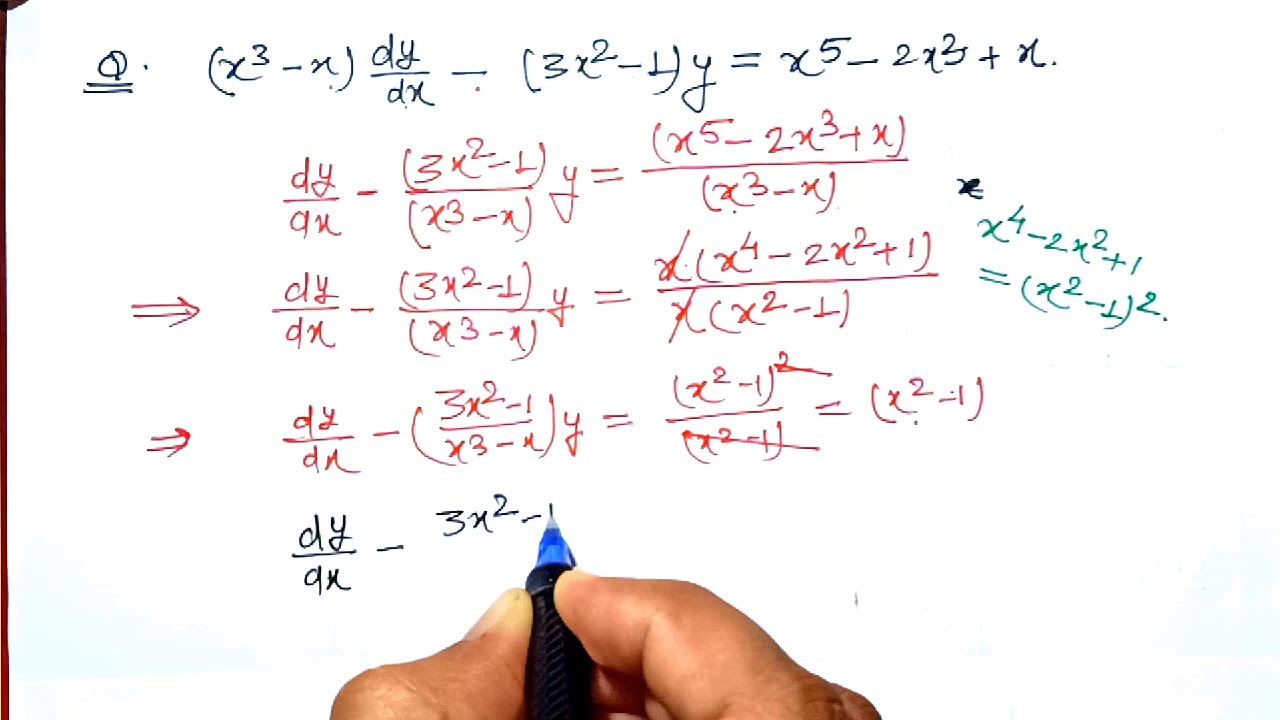 Q. (x³ - x) dy/dx - (3x² - 1)y = x⁵ - 2x³ + x.
dy/dx - (3x² - 1)/(x³ - x) y = (x⁵ - 2x³ + x)/(x³ - x)
x⁴ - 2x² + 1
= (x² - 1)².
⇒ dy/dx - (3x² - 1)/(x³ - x) y = x·(x⁴ - 2x² + 1)/x(x² - 1)
⇒ dy/dx - (3x² - 1/x³ - x)y = (x² - 1)²/(x² - 1) = (x² - 1)
dy/dx - 3x² - 1